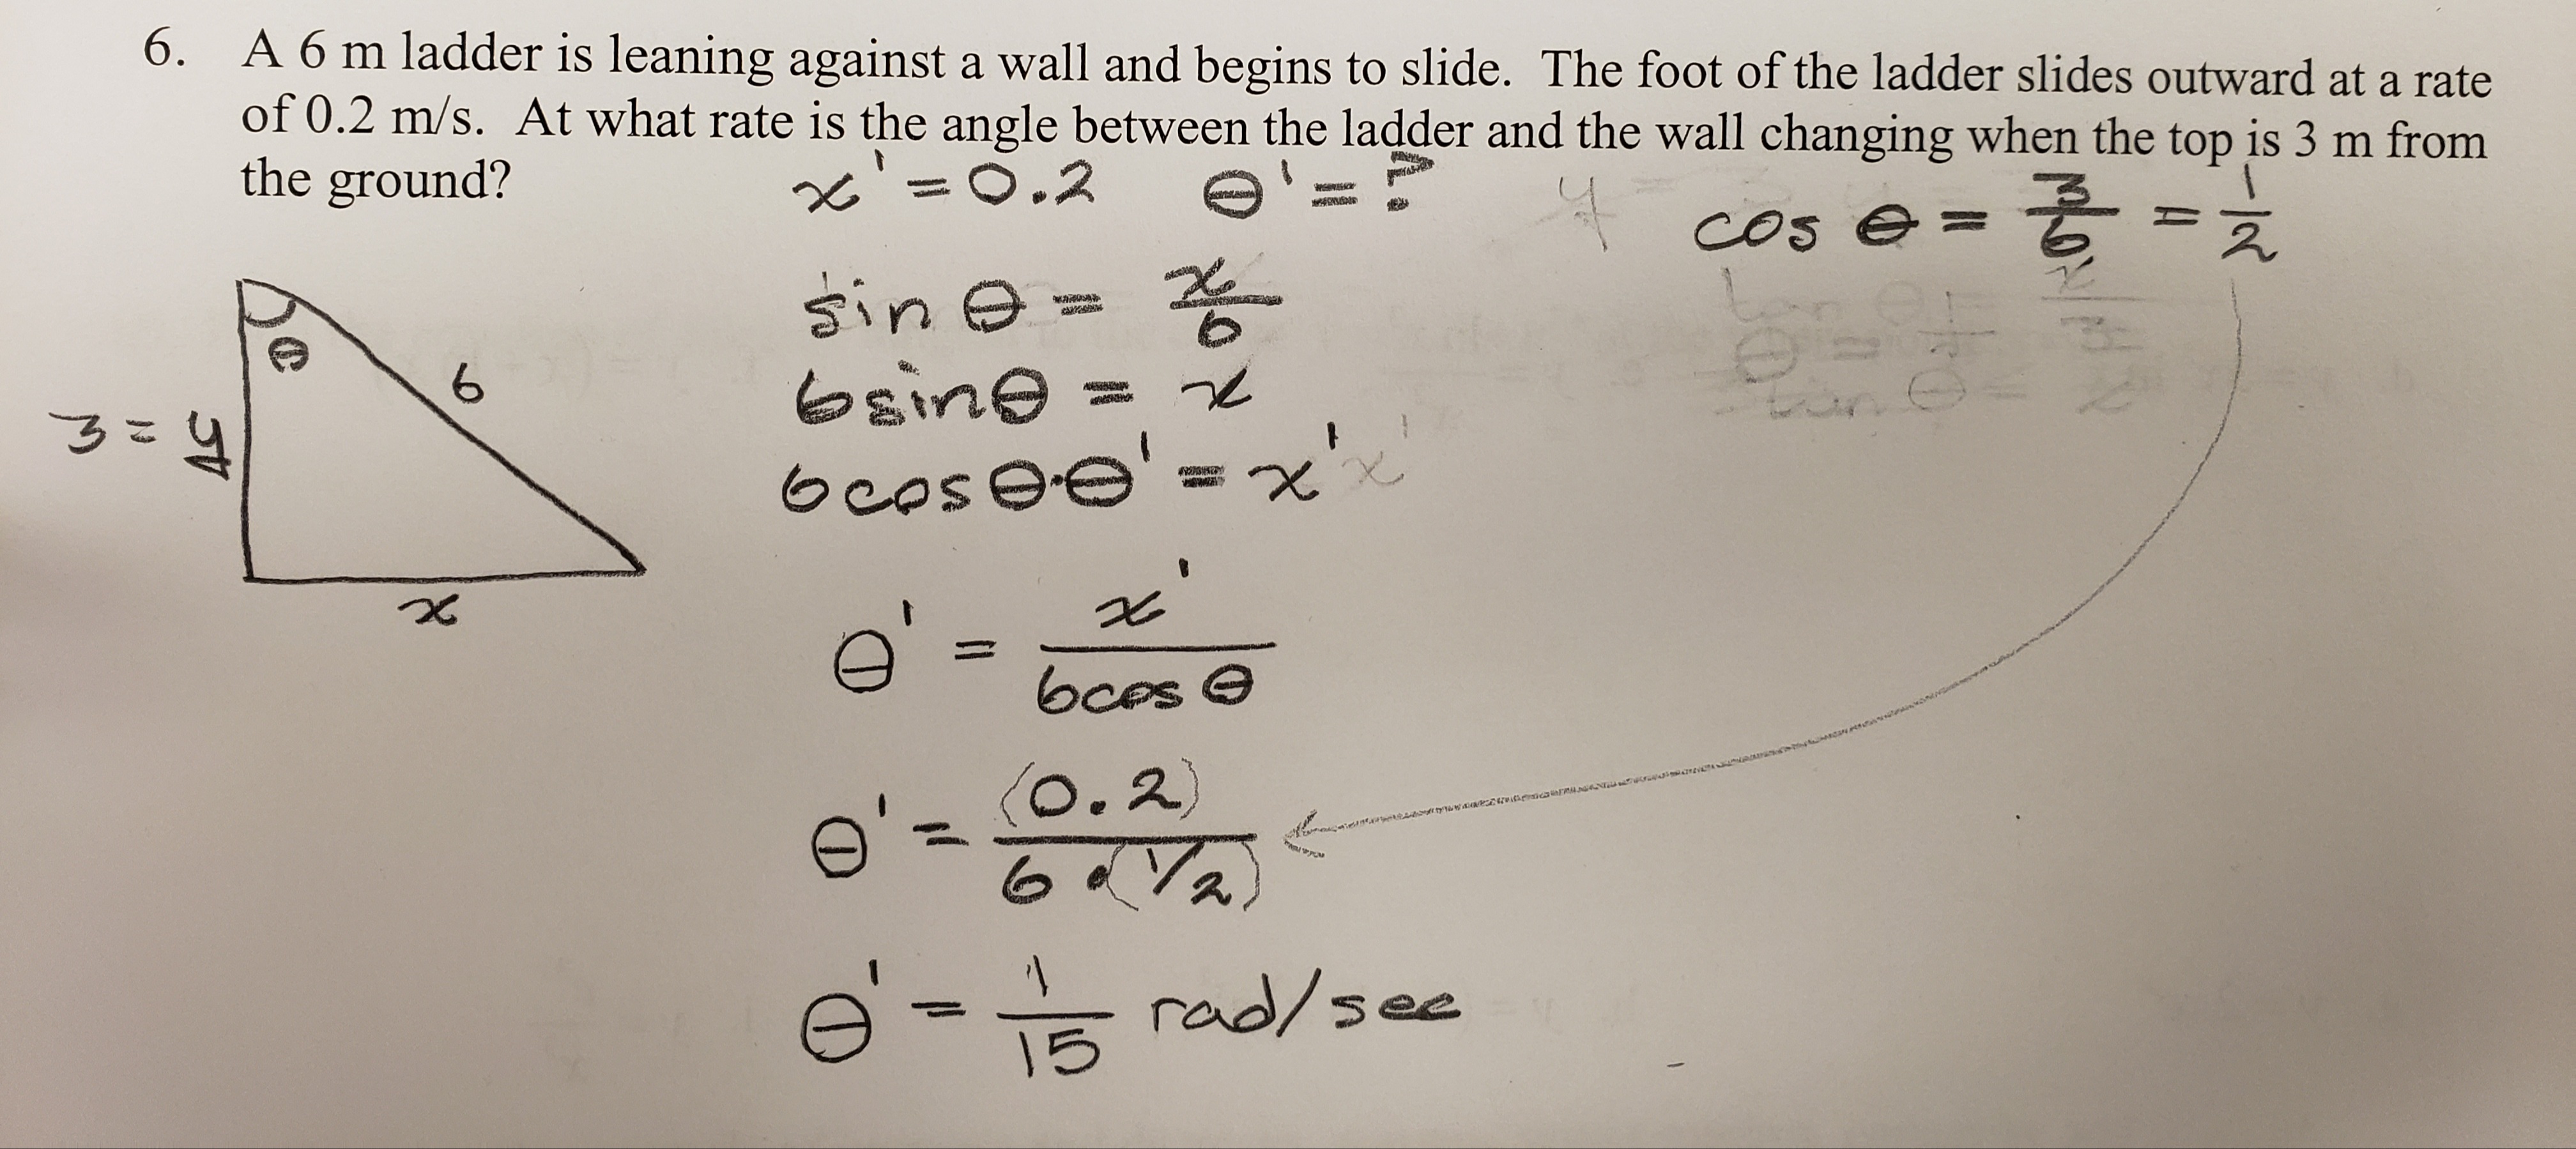 6. A 6 m ladder is leaning against a wall and begins to slide. The foot of the ladder slides outward at a rate
of 0.2 m/s. At what rate is the angle between the ladder and the wall changing when the top is 3 m from
the ground?
x' = 0.2 θ' = ?
cos θ = 3/6 = 1/2
θ
6
3 = y
x
sin θ = x/6
6 sin θ = x
6 cos θ · θ' = x'
θ' = x'/(6 cos θ)
θ' = (0.2)/(6 · (1/2))
θ' = 1/15 rad/sec